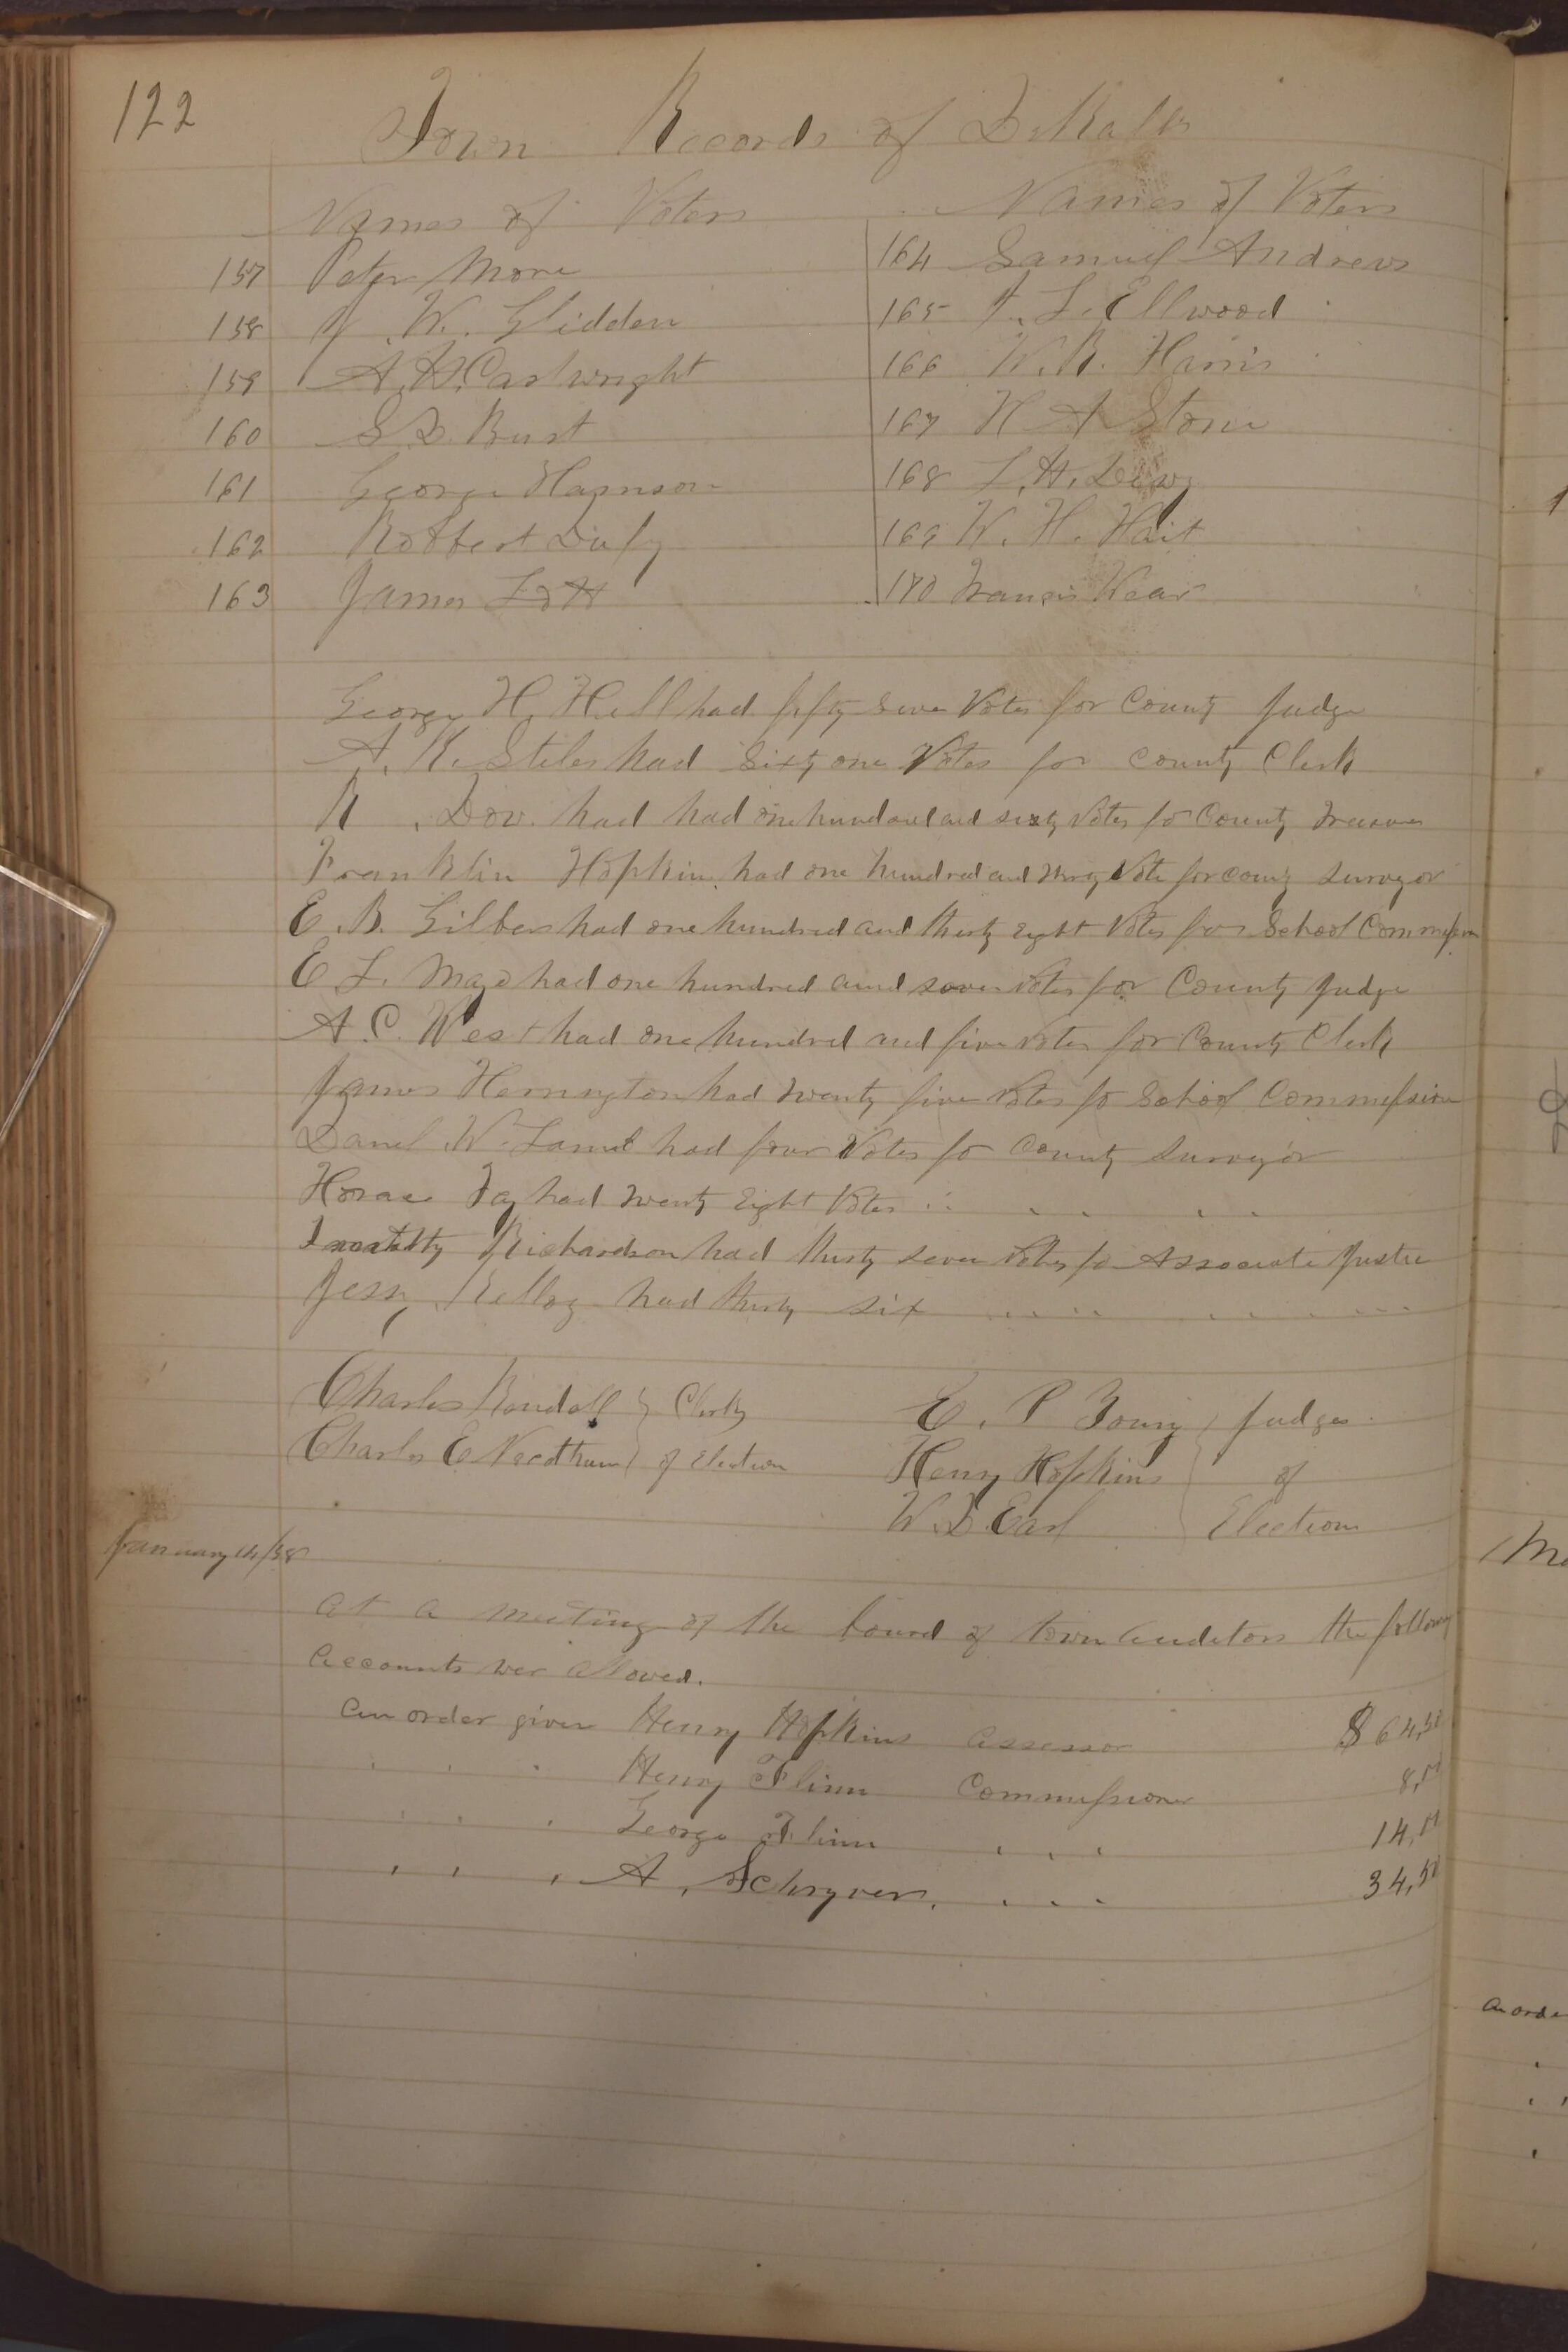 122
Town Records of DeKalb
Names of Voters
157 Peter More
158 J. W. Glidden
159 A. H. Cartwright
160 S. D. Burst
161 George Harrison
162 Robbert
163 James Lott
Names of Voters
164 Samuel Andrews
165 I. L. Ellwood
166 W. R. Harris
167 H A Stone
168 L. H. Dewy
169 W. H. Hait
170 Francis Kear
George H. Hill had fifty Seven Votes for County Judge
A. K. Stiles had Sixty one Votes for County Clerk
R. Dow. had had one hundred and sixty Votes for County Treasurer
Franklin Hopkins had one hundred and Votes for County Surveyor
E. B. Gilbert had one hundred and thirty Eight Votes for School Commission
E L. Mayo had one hundred and seven Votes for County Judge
A. C. West had one hundred and five Votes for County Clerk
James Harrington had twenty five Votes fo School Commission
Daniel W. Lamb had four Votes fo County Surveyor
Horace Fay had twenty Eight Votes " " " " "
Richardson had thirty seven Votes fo Associate Justice
Jesse Kellog had thirty six " " " " "
Charles Randall } Clerks
Charles E Needham } of Election
E. P Young } Judges
Henry Hopkins } of
W. D. Earl } Election
January 14/58
at a meeting of the board of town auditors the following
accounts wer allowed.
an order given Henry Hopkins assessor $64,50
" " " Henry Flinn Commissioner 8,00
" " " George Flinn " " " 14,00
" " " A. Schryver. " " " 34,50
2
Mo
an orde